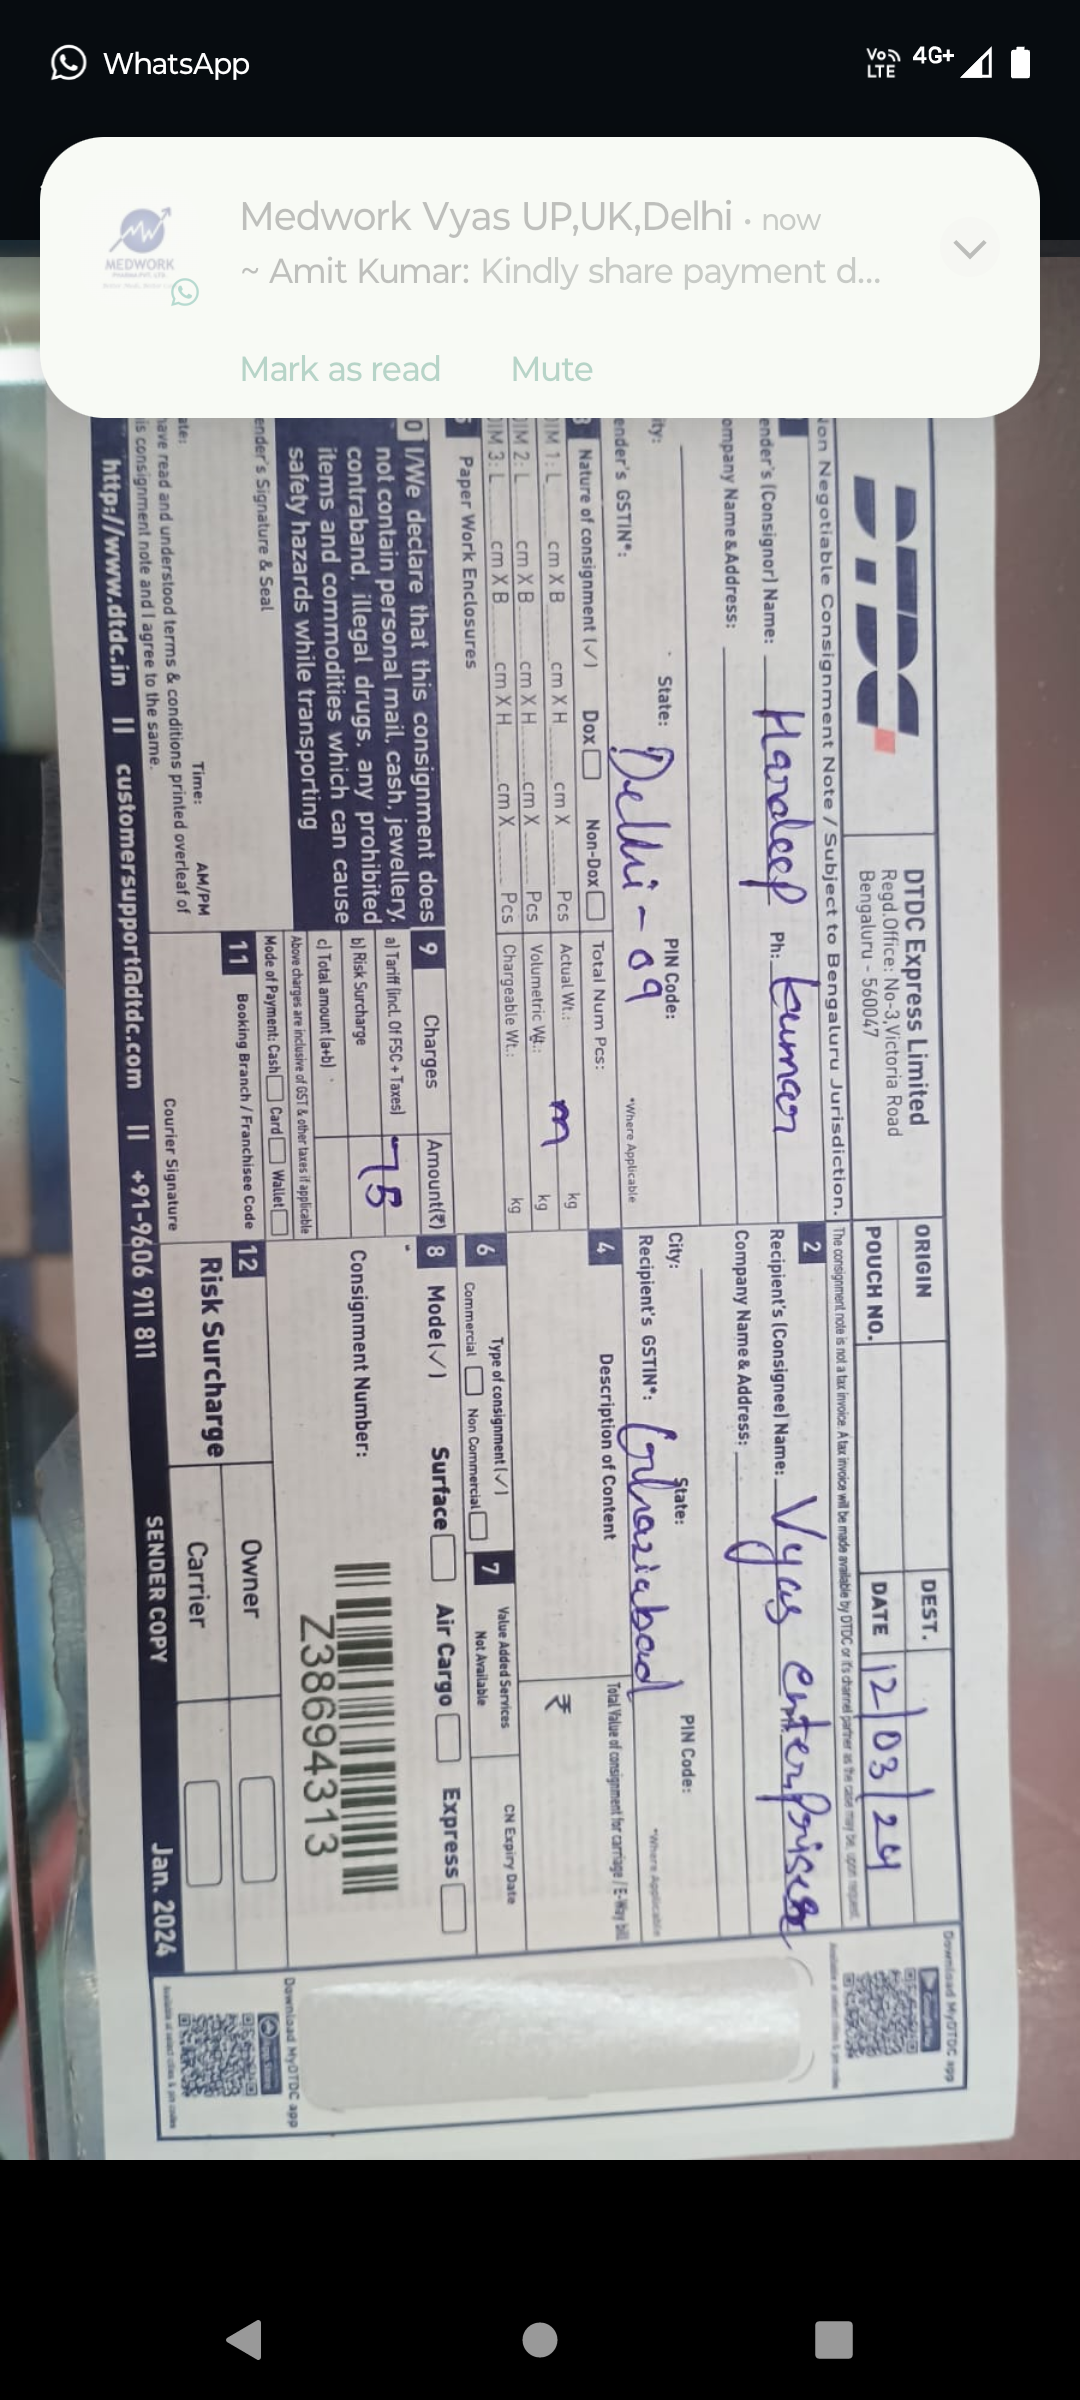 WhatsApp
Vo LTE 4G+
Medwork Vyas UP,UK,Delhi • now
~ Amit Kumar: Kindly share payment d...
Mark as read Mute
MEDWORK
DTDC
DTDC Express Limited
Regd.Office: No-3,Victoria Road
Bengaluru - 560047
ORIGIN
DEST.
POUCH NO.
DATE 12/03/24
Non Negotiable Consignment Note / Subject to Bengaluru Jurisdiction.
The consignment note is not a tax invoice. A tax invoice will be made available by DTDC or it's channel partner as the case may be, upon request.
ender's (Consignor) Name: Hardeep Ph: kumar
ompany Name & Address:
2
Recipient's (Consignee) Name: Vyas enterprises
Company Name & Address:
ity: State: PIN Code:
ender's GSTIN*: Delhi - 09
*Where Applicable
City: State: PIN Code:
Recipient's GSTIN*: Ghaziabad
*Where Applicable
Nature of consignment (✓) Dox Non-Dox
Total Num Pcs:
DIM 1: L cm X B cm X H cm X Pcs
Actual Wt.: kg
DIM 2: L cm X B cm X H cm X Pcs
Volumetric Wt.: kg
DIM 3: L cm X B cm X H cm X Pcs
Chargeable Wt.: kg
4 Description of Content
Total Value of consignment for carriage / E-Way bill
₹
Paper Work Enclosures
6 Type of consignment (✓)
Commercial Non Commercial
7 Value Added Services
Not Available
CN Expiry Date
0 I/We declare that this consignment does
not contain personal mail, cash, jewellery,
contraband, illegal drugs, any prohibited
items and commodities which can cause
safety hazards while transporting
9 Charges Amount(₹)
a) Tariff (incl. Of FSC + Taxes) 75
b) Risk Surcharge
c) Total amount (a+b)
Above charges are inclusive of GST & other taxes if applicable
Mode of Payment: Cash Card Wallet
8 Mode (✓) Surface Air Cargo Express
Consignment Number:
Z38694313
ender's Signature & Seal
11 Booking Branch / Franchisee Code
12
Risk Surcharge
Owner
Carrier
ate: Time: AM/PM
have read and understood terms & conditions printed overleaf of
is consignment note and I agree to the same.
Courier Signature
http://www.dtdc.in || customersupport@dtdc.com || +91-9606 911 811 SENDER COPY Jan. 2024
Download MyDTDC app
Download MyDTDC app